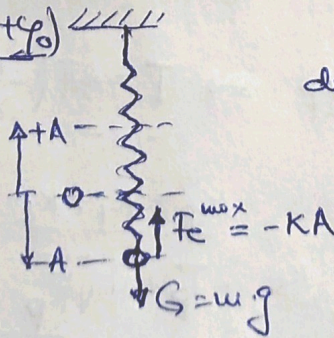 +φ₀)
d
+A
O
Fe^max = -KA
-A
G = m·g